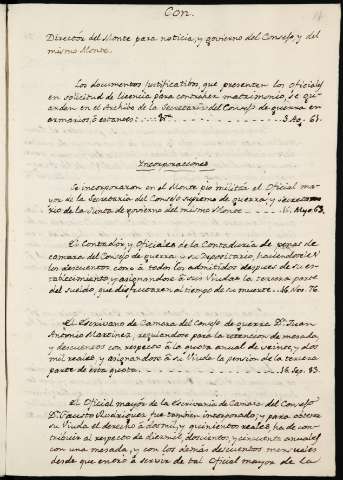 Con.
Director del Monte para noticia, y govierno del Consejo y del
mismo Monte.
Los documentos justificativos que presenten los Oficiales
en solicitud de licencia para contraher matrimonio, se gu
arden en el Archivo de la Secretaría del Consejo de guerra en
armarios, o estantes: 3 Ag. 61.
Incorporaciones
Se incorporaron en el Monte pio militar el Oficial ma
yor de la Secretaría del Consejo supremo de guerra, y Secreta
rio de la Junta de govierno del mismo Monte 11. Mayo 63.
El Contador, y Oficiales de la Contaduria de penas de
camara del Consejo de guerra, y su Depositario, haciendoles
los descuentos como a todos los admitidos despues de su es
tablecimiento, y asignandose a sus Viudas la tercera parte
del sueldo, que disfrutaren al tiempo de su muerte 16 Nov. 76
El Escrivano de Camara del Consejo de guerra Dn. Juan
Antonio Martinez, regulandose para la retencion de mesada,
y descuentos con respecto a la quota anual de veinte, y dos
mil reales, y asignandose a su Viuda la pension de la tercera
parte de esta quota 18. Sep. 83.
El Oficial mayor de la Escrivanía de Camara del Consejo
Dn. Fausto Rodriguez fue tambien incorporado; y para obtener
su Viuda el derecho a dos mil, y quinientos reales ha de con
tribuir al respecto de diezmil, doscientos, y cincuenta anuales
con una mesada, y con los demas descuentos mensuales
desde que entró a servir de tal Oficial mayor de la